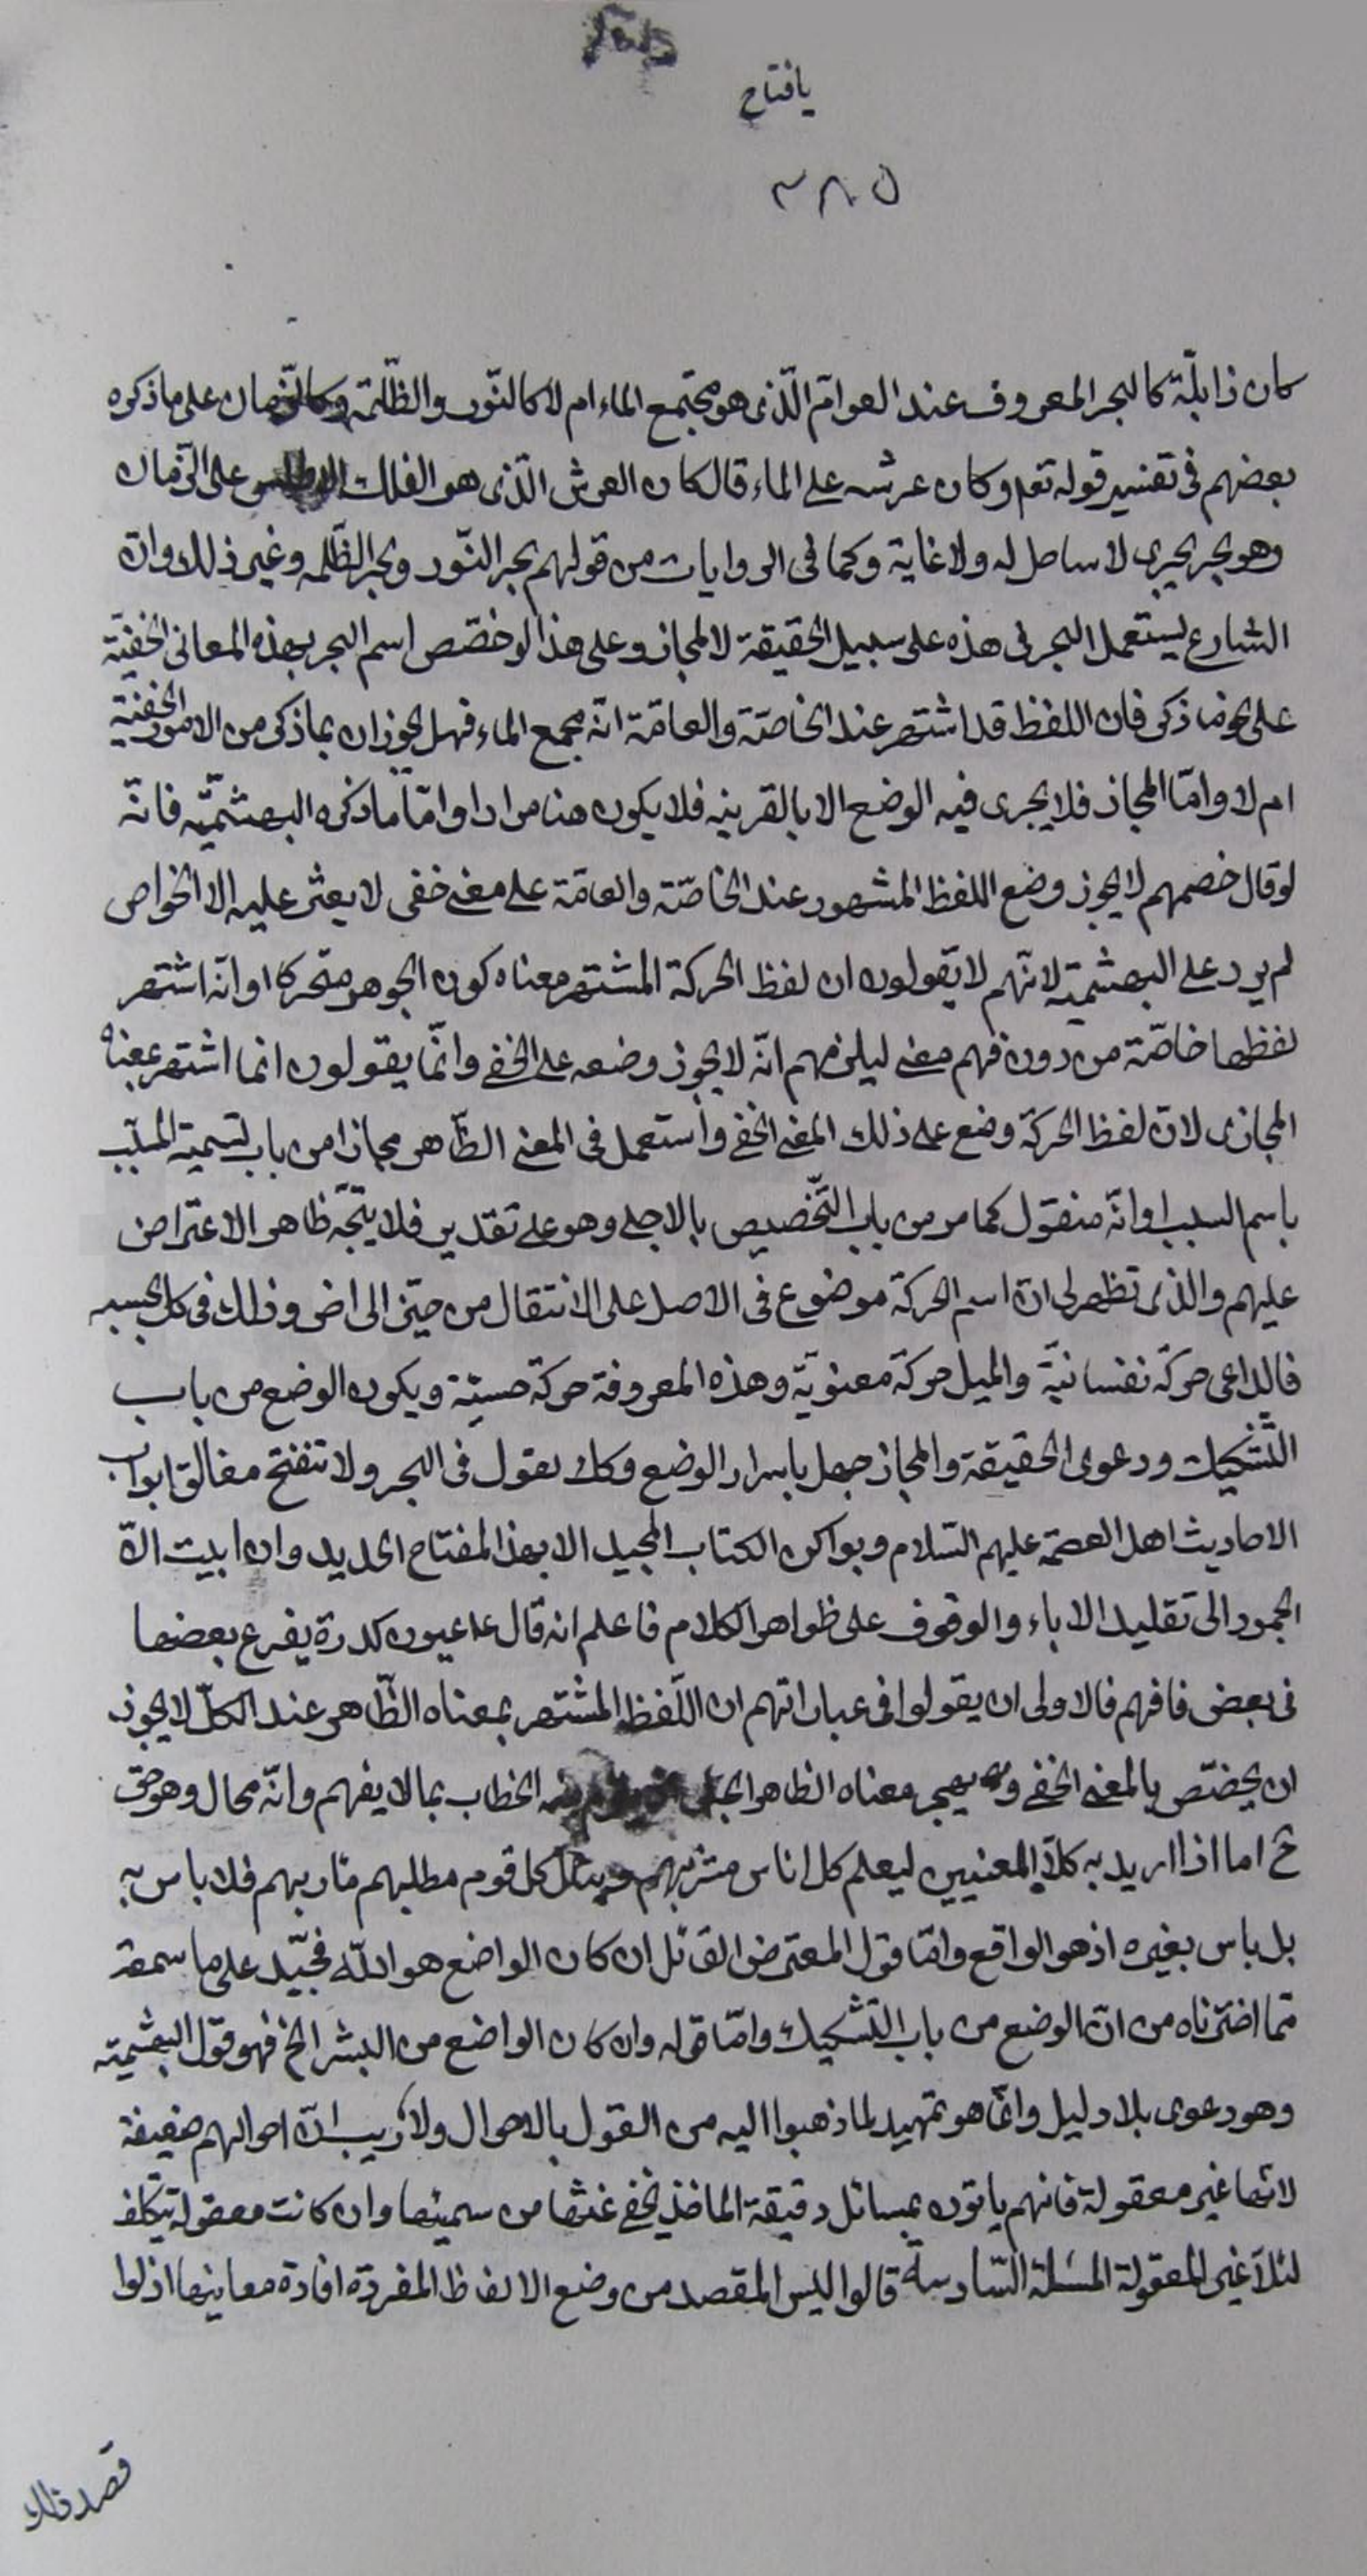 يافتاح
٣٨٥
كان ذا بلّة كالبحر المعروف عند العوامّ الّذى هو مجتمع الماء ام لا كالنّور والظّلمة وكالزّمان على ما ذكره
بعضهم فى تفسير قوله تعم وكان عرشه على الماء قال كان العرش الّذى هو الفلك الاطلس على الزّمان
وهو بحر يجرى لا ساحل له ولا غاية وكما فى الروايات من قولهم بحر النّور وبحر الظّلمه وغير ذلك وانّ
الشارع يستعمل البحر فى هذه على سبيل الحقيقة لا المجاز وعلى هذا لو خصّص اسم البحر بهذه المعانى الخفيّة
على نحو ما ذكر فان اللفظ قد اشتهر عند الخاصّة والعامّة انّه مجمع الماء فهل يجوز ان بما ذكر من الامور الخفيّة
ام لا وامّا المجاز فلا يجرى فيه الوضع الا بالقرينه فلا يكون هنا مرادا وامّا ما ذكره البهشميّه فانّه
لو قال خصمهم لا يجوز وضع اللفظ المشهور عند الخاصّة والعامّة على معنى خفى لا يعثر عليه الا الخواص
لم يرد على البهشمية لانّهم لا يقولون ان لفظ الحركة المشتهر معناه كون الجوهر متحركا او انّه اشتهر
لفظها خاصّة من دون فهم معنى ليلزمهم انّه لا يجوز وضعه على الخفى وانّما يقولون انما اشتهر بمعناه
المجازى لانّ لفظ الحركة وضع على ذلك المعنى الخفى واستعمل فى المعنى الظّاهر مجازا من باب تسمية المسبّب
باسم السبب او انّه منقول كما مر من باب التّخصيص بالاجلى وهو على تقدير فلا يتجّه ظاهر الاعتراض
عليهم والذى تظهر لى انّ اسم الحركة موضوع فى الاصل على الانتقال من حيّز الى اخر وذلك فى كل بحسبه
فالداعى حركة نفسانيّة والميل حركة معنويّة وهذه المعروفة حركة حسيّة ويكون الوضع من باب
التّشكيك ودعوى الحقيقة والمجاز جهل باسرار الوضع وكك نقول فى البحر ولا تنفتح مغالق ابواب
الاحاديث اهل العصمة عليهم السّلام وبواكن الكتاب المجيد الا بهذا المفتاح الحديد وان ابيت الّا
الجمود الى تقليد الاباء والوقوف على ظواهر الكلام فاعلم انه قال ع عيون كدرة يفرغ بعضها
فى بعض فافهم فالاولى ان يقولوا فى عباراتهم ان اللّفظ المشتهر بمعناه الظّاهر عند الكلّ لا يجوز
ان يختصّ بالمعنى الخفى ويهجر معناه الظاهر الخطاب بما لا يفهم وانّه محال وهو حق
ح اما اذا اريد به كلا المعنيين ليعلم كل اناس مشربهم وينال كل قوم مطلبهم مآربهم فلا باس به
بل باس بغيره اذ هو الواقع وامّا قول المعترض القائل ان كان الواضع هو اللّه فجيّد على ما سمعت
ممّا اخترناه من انّ الوضع من باب التّشكيك وامّا قوله وان كان الواضع من البشر الخ فهو قول البهشميّه
وهو دعوى بلا دليل وانّما هو تمهيد لما ذهبوا اليه من القول بالاحوال ولا ريب انّ احوالهم ضعيفة
لانّها غير معقولة فانهم ياتون بمسائل دقيقة الماخذ يخفى غثّها من سمينها وان كانت معقولة بتكلف
لئلّا غير المعقولة المسئلة السّادسة قالوا ليس المقصد من وضع الالفاظ المفردة افادة معاينها اذ لوا
قصد ذلك